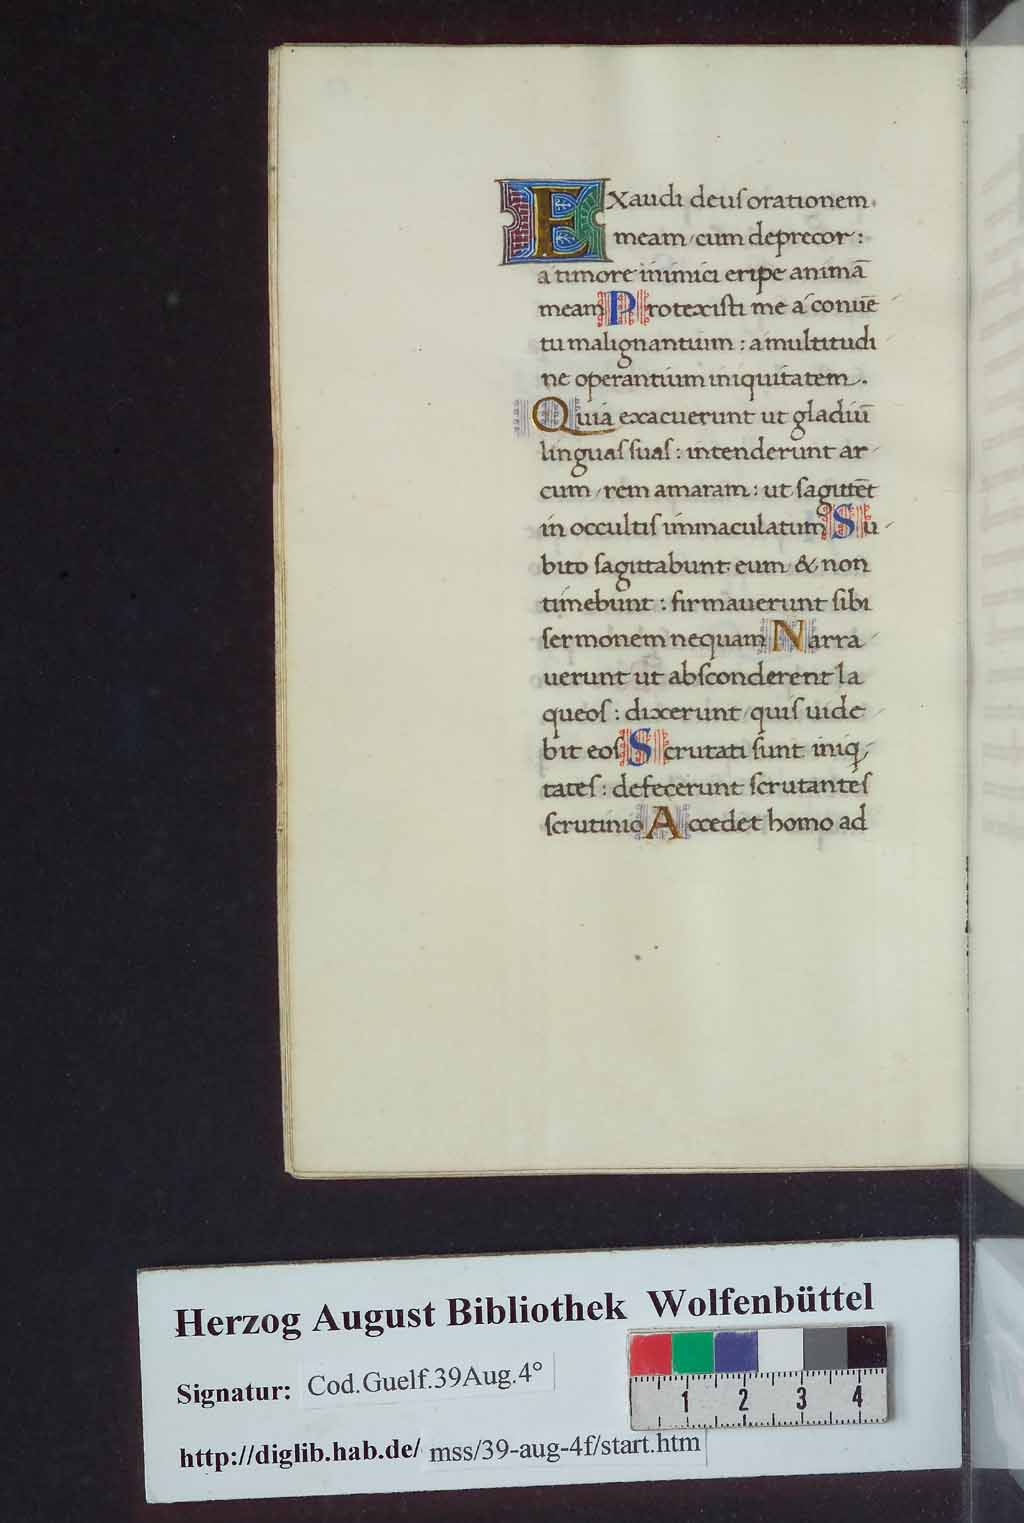 Exaudi deus orationem
meam, cum deprecor:
a timore inimici eripe animā
meam Protexisti me a conuē
tu malignantium: a multitudi
ne operantium iniquitatem.
Quia exacuerunt ut gladiū
linguas suas: intenderunt ar
cum, rem amaram: ut sagittēt
in occultis immaculatum Su
bito sagittabunt eum & non
timebunt: firmauerunt sibi
sermonem nequam Narra
uerunt ut absconderent la
queos: dixerunt, quis uide
bit eos Scrutati sunt iniq,
tates: defecerunt scrutantes
scrutinio Accedet homo ad
Herzog August Bibliothek Wolfenbüttel
Signatur: Cod.Guelf.39Aug.4°
http://diglib.hab.de/ mss/39-aug-4f/start.htm
1 2 3 4